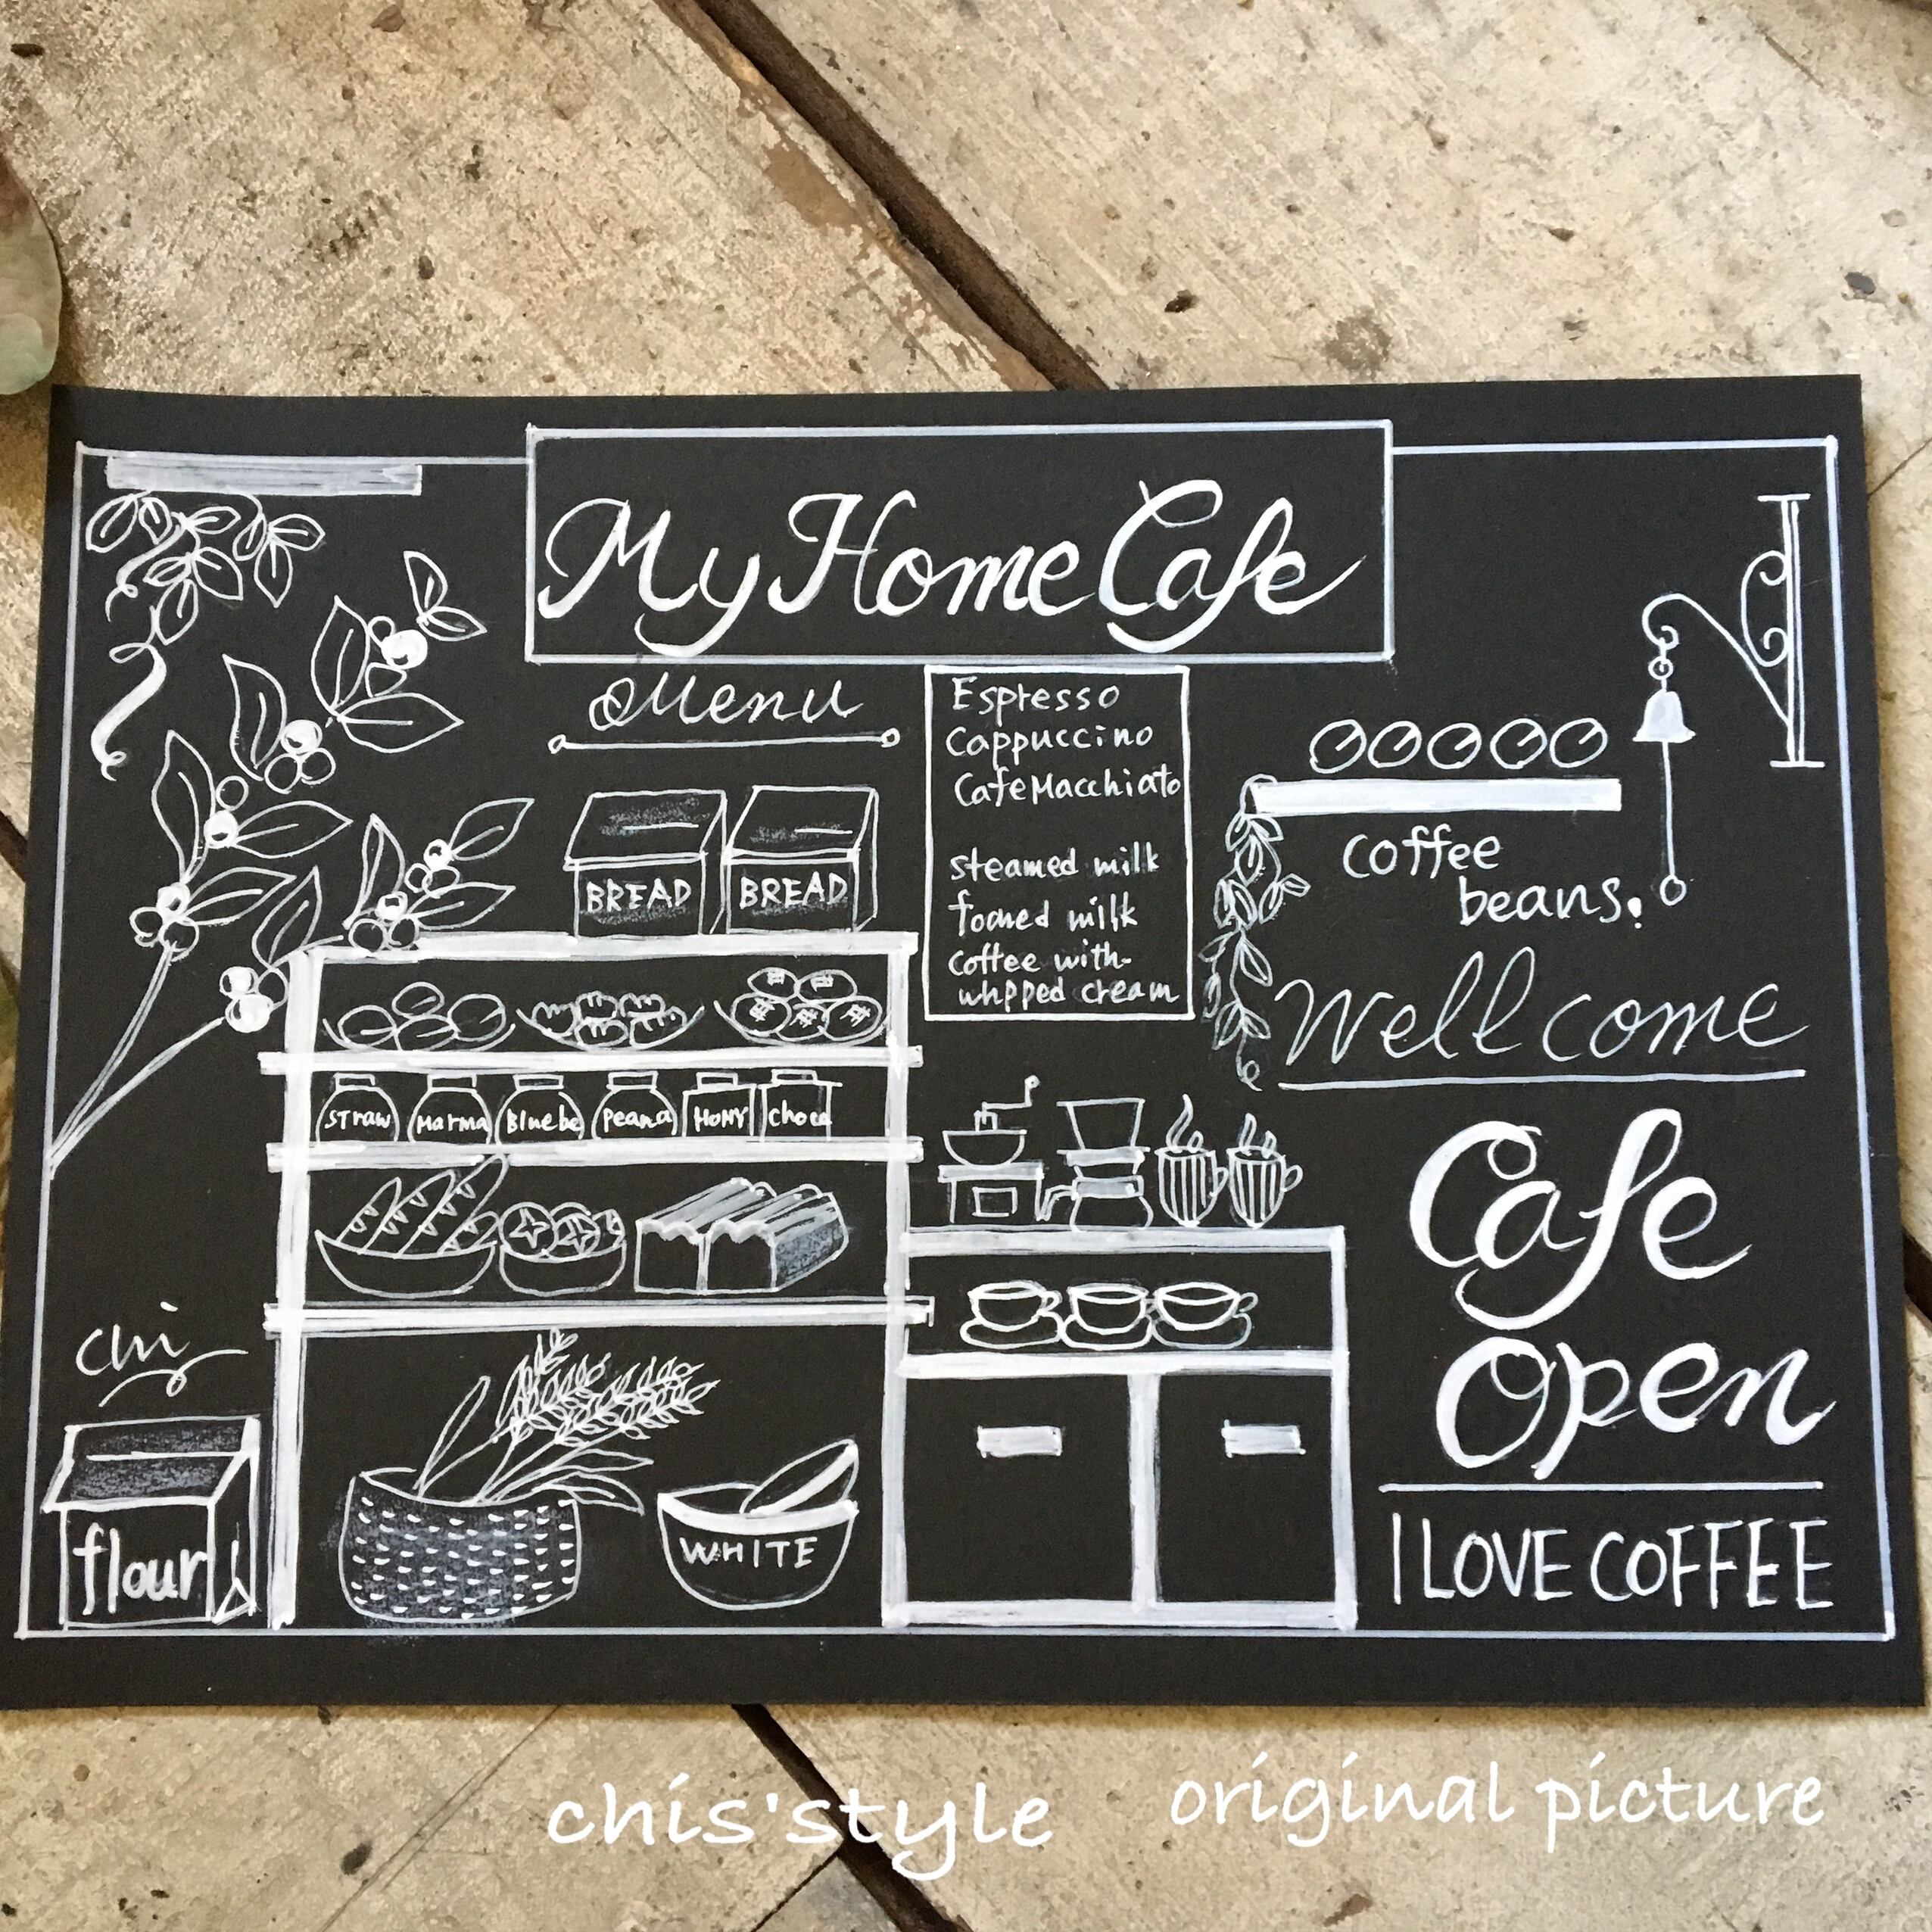 My Home Cafe
Menu
Espresso
Cappuccino
Cafe Macchiato
steamed milk
foamed milk
coffee with-
whpped cream
BREAD
BREAD
coffee
beans.
Wellcome
straw
Marma
Bluebe
Peana
HONY
choco
Cafe
Open
I LOVE COFFEE
chi
flour
WHITE
chis'style
original picture